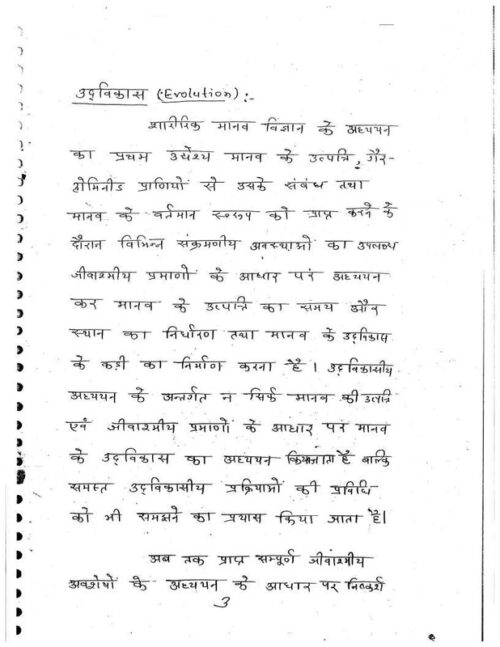 उद्‌विकास (Evolution) :-
शारीरिक मानव विज्ञान के अध्ययन
का प्रथम उद्येश्य मानव के उत्पत्ति, गैर-
होमिनीड प्राणियों से उसके संबंध तथा
मानव के वर्तमान स्वरूप को प्राप्त करने के
दौरान विभिन्न संक्रमणीय अवस्थाओं का उपलब्ध
जीवाश्मीय प्रमाणों के आधार पर अध्ययन
कर मानव के उत्पत्ति का समय और
स्थान का निर्धारण तथा मानव के उद्‌विकास
के कड़ी का निर्माण करना है । उद्‌विकासीय
अध्ययन के अन्तर्गत न सिर्फ मानव की उत्पत्ति
एवं जीवाश्मीय प्रमाणों के आधार पर मानव
के उद्‌विकास का अध्ययन किया जाता है बल्कि
समस्त उद्‌विकासीय प्रक्रियाओं की प्रविधि
को भी समझने का प्रयास किया जाता है।
अब तक प्राप्त सम्पूर्ण जीवाश्मीय
अवशेषों के अध्ययन के आधार पर निष्कर्श
3